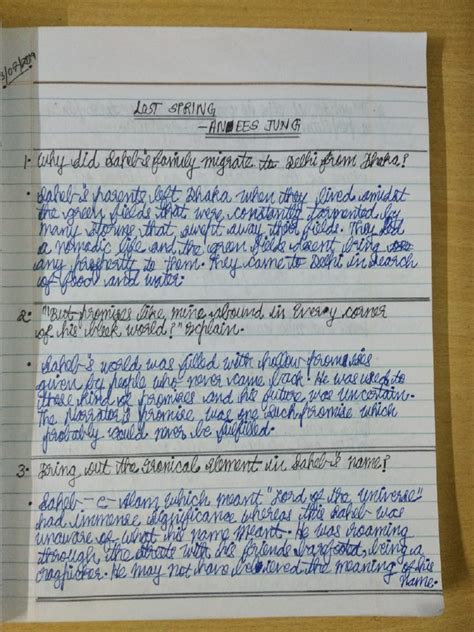 3/07/2019
LOST SPRING
-ANEES JUNG
1. Why did Saheb's family migrate to Delhi from Dhaka?
• Saheb's parents left Dhaka when they lived amidst
the green fields that were constantly tormented by
many storms that swept away their fields. They led
a nomadic life and the grain fields didn't bring
any prosperity to them. They came to Delhi in search
of food and water.
2. "But promises like mine abound in every corner
of his bleak world!" Explain.
• Saheb's world was filled with hollow promises
given by people who never came back. He was used to
these kind of promises and his future was uncertain.
The Narrator's promise was one such promise which
probably could never be fulfilled.
3. Bring out the Ironical element in Saheb's name?
• Saheb-e-Alam which meant "Lord of the Universe"
had immense significance whereas this Saheb was
unaware of what his name meant. He was roaming
through the streets with his friends barefoot, being a
ragpicker. He may not have believed the meaning of his
name.